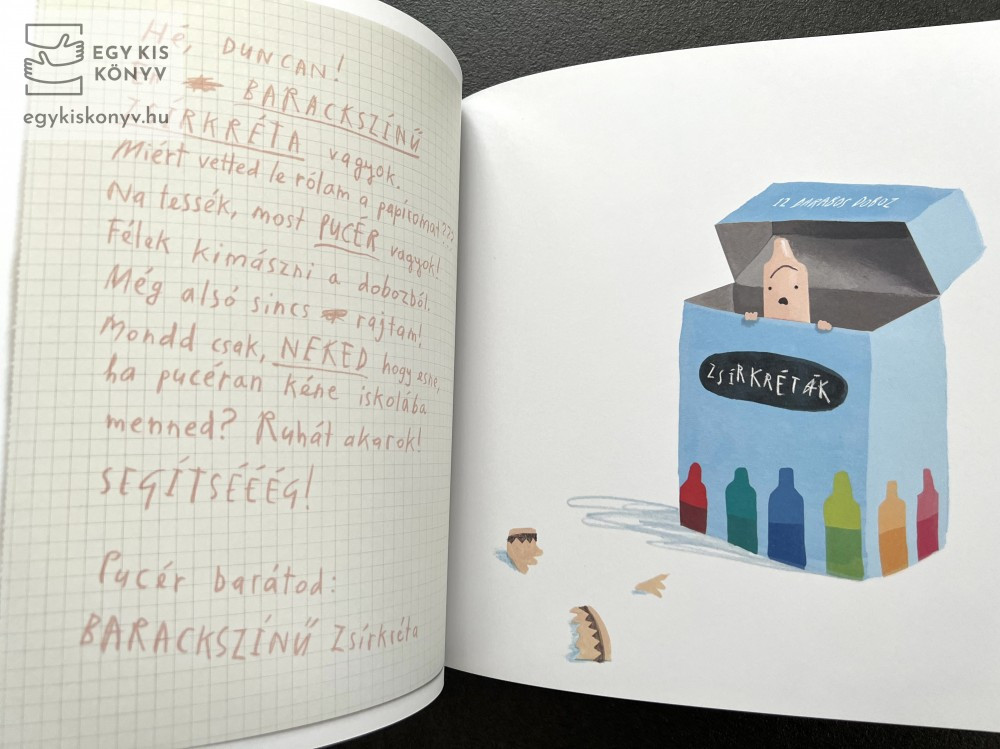 EGY KIS
KÖNYV
egykiskonyv.hu
Hé, DUNCAN!
ÉN BARACKSZÍNŰ
ZSÍRKRÉTA vagyok.
Miért vetted le rólam a papíromat???
Na tessék, most PUCÉR vagyok!
Félek kimászni a dobozból.
Még alsó sincs rajtam!
Mondd csak, NEKED hogy esne,
ha pucéran kéne iskolába
menned? Ruhát akarok!
SEGÍTSÉÉÉG!
Pucér barátod:
BARACKSZÍNŰ Zsírkréta
12 DARABOS DOBOZ
ZSÍRKRÉTÁK